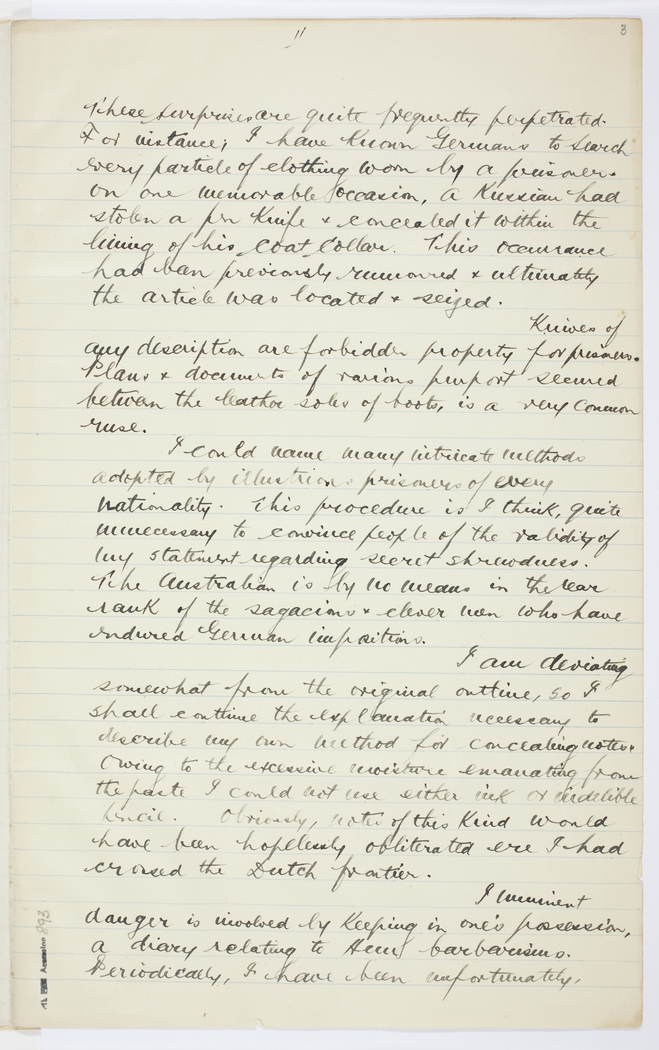 11
3
These surprises are quite frequently perpetrated.
For instance; I have known Germans to search
every particle of clothing worn by a prisoner.
on one memorable occasion, a Russian had
stolen a pen Knife & concealed it within the
lining of his coat collar. This occurrance
had been previously rumoured & ultimately
the article was located & seized.
Knives of
any description are forbidden property for prisoners.
Plans & documents of various purport secured
between the leather soles of boots, is a very common
ruse.
I could name many intricate methods
adopted by illustrious prisoners of every
nationality. This procedure is I think, quite
unnecessary to convince people of the validity of
my statement regarding secret shrewdness.
The Australian is by no means in the rear
rank of the sagacious & clever men who have
endured German impositions.
I am deviating
somewhat from the original outline, so I
shall continue the explanation necessary to
describe my own method for concealing notes.
Owing to the excessive moisture emanating from
the paste I could not use either ink or indelible
pencil. Obviously, notes of this kind would
have been hopelessly obliterated ere I had
crossed the Dutch frontier.
Imminent
danger is involved by keeping in one's possession,
a diary relating to Hun barbarisms.
Periodically, I have been unfortunately,
Accession 893